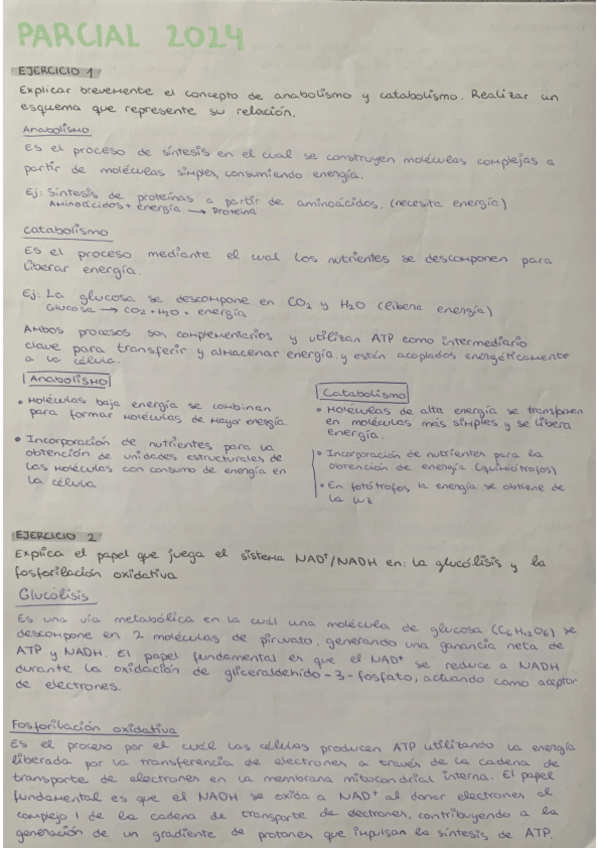 PARCIAL 2024
EJERCICIO 1
Explicar brevemente el concepto de anabolismo y catabolismo. Realizar un
esquema que represente su relación.
Anabolismo
Es el proceso de síntesis en el cual se construyen moléculas complejas a
partir de moléculas simples, consumiendo energía.
Ej: Síntesis de proteínas a partir de aminoácidos. (necesita energía)
Aminoácidos + energía → Proteína
Catabolismo
Es el proceso mediante el cual los nutrientes se descomponen para
liberar energía.
Ej: La glucosa se descompone en CO2 y H2O (libera energía)
Glucosa → CO2 + H2O + energía
Ambos procesos son complementarios y utilizan ATP como intermediario
clave para transferir y almacenar energía y están acoplados energéticamente
a la célula.
Anabolismo
• Moléculas baja energía se combinan
para formar moléculas de mayor energía
• Incorporación de nutrientes para la
obtención de unidades estructurales de
las moléculas con consumo de energía en
la célula
Catabolismo
• Moléculas de alta energía se transponen
en moléculas más simples y se libera
energía.
• Incorporación de nutrientes para la
obtención de energía (quimiótrofos)
• En fotótrofos la energía se obtiene de
la luz
EJERCICIO 2
Explica el papel que juega el sistema NAD+/NADH en: la glucólisis y la
fosforilación oxidativa
Glucólisis
Es una vía metabólica en la cuál una molécula de glucosa (C6H12O6) se
descompone en 2 moléculas de piruvato, generando una ganancia neta de
ATP y NADH. El papel fundamental es que el NAD+ se reduce a NADH
durante la oxidación de gliceraldehído-3-fosfato, actuando como aceptor
de electrones.
Fosforilación oxidativa
Es el proceso por el cuál las células producen ATP utilizando la energía
liberada por la transferencia de electrones a través de la cadena de
transporte de electrones en la membrana mitocondrial interna. El papel
fundamental es que el NADH se oxida a NAD+ al donar electrones al
complejo 1 de la cadena de transporte de electrones, contribuyendo a la
generación de un gradiente de protones que impulsan la síntesis de ATP.